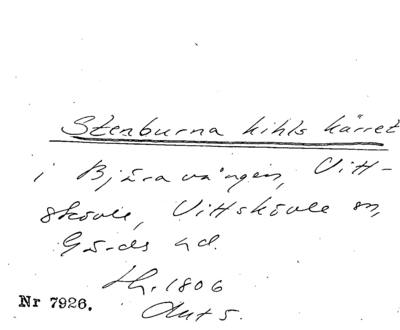 Stenburna kihls kärret
i Bjäravången, Vitt-
skövle, Vittskövle sn,
Gärds hd.
Lh. 1806
Akt 5.
Nr 7926.